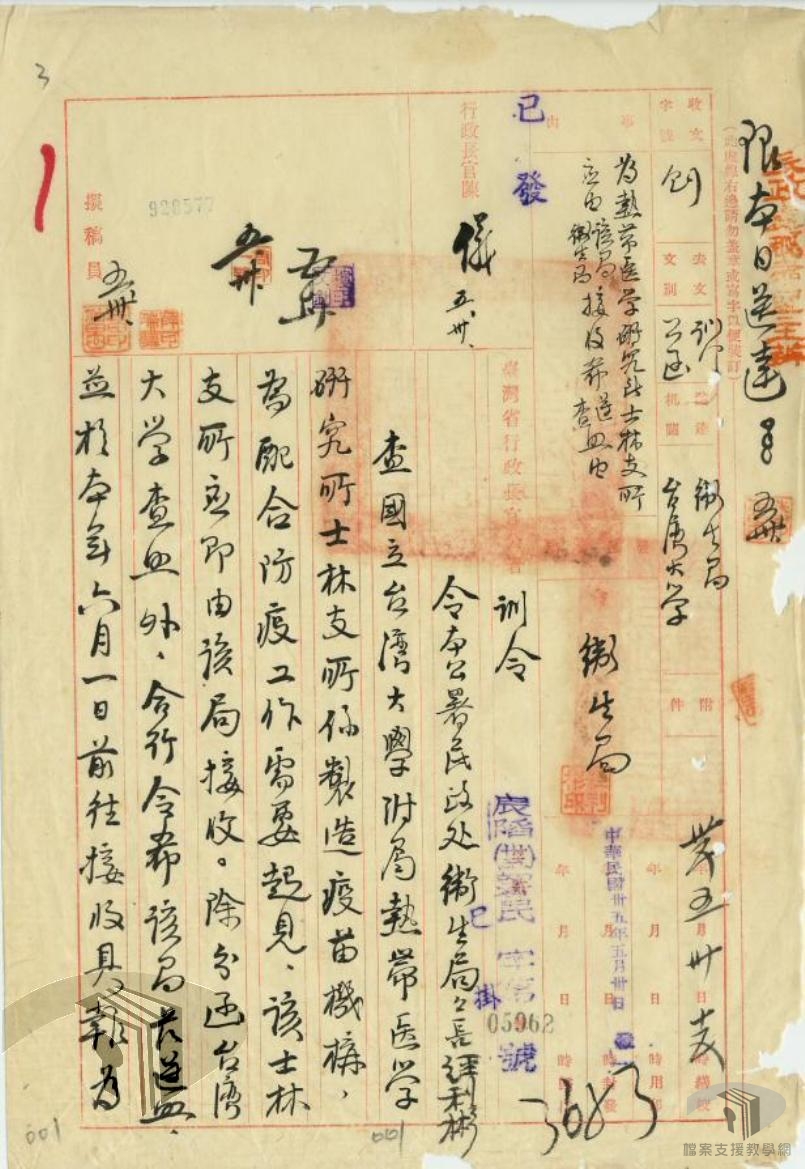 限本日送達
(此處線右邊請勿蓋章或寫字以便裝訂)
收文字號
去文文別 訓令 公函
送達機關 衛生局 台灣大學
附件
事由
為熱帶医学研究所士林支所
应由該局接收希遵照由
衛生局
已發
行政長官陳
儀 五.卅.
臺灣省行政長官公署
訓令
衛生局
中華民國卅五年五月卅日
年 月 日 時
已掛
05962
號
3683
令本公署民政处衛生局局長經利彬
查國立台灣大學附屬熱帶医学
研究所士林支所係製造疫苗機構，
為配合防疫工作需要起見、該士林
支所应即由該局接收。除分函台灣
大学查照外、合行令希該局於遵照、
並於本年六月一日前往接收具報為
撰稿員
928577
五.卅.
3
001
001
檔案支援教學網